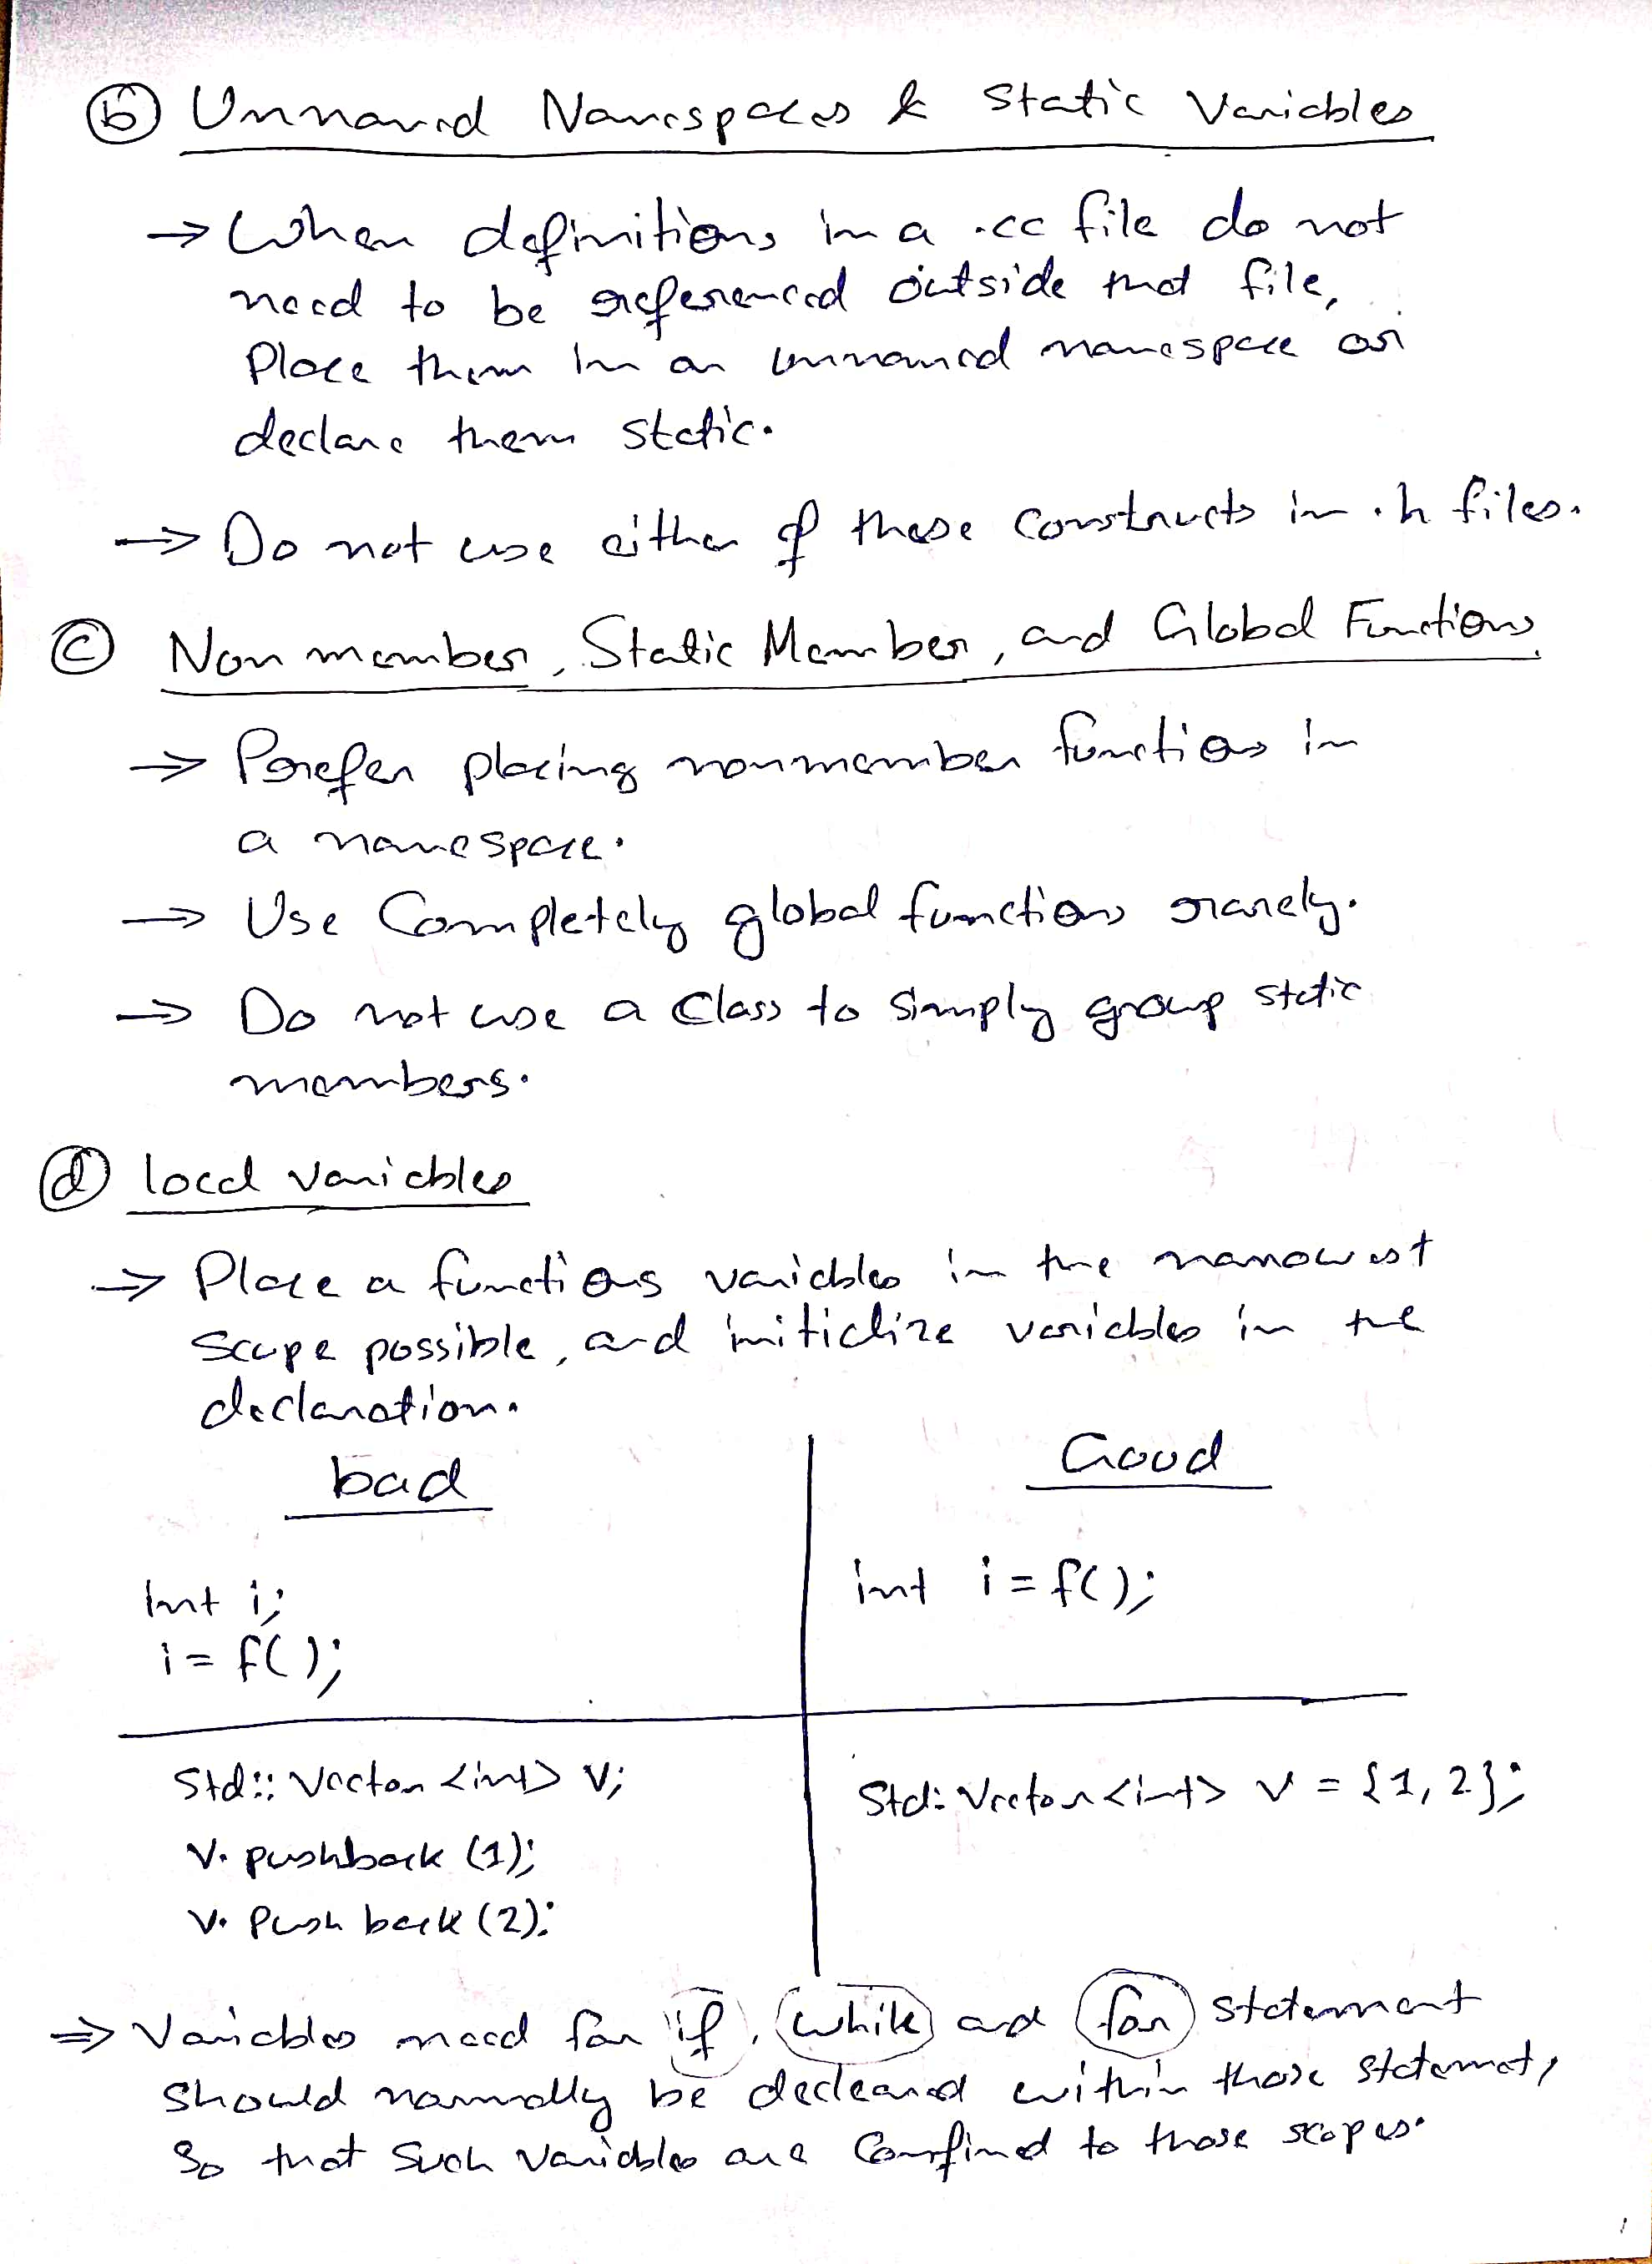 (b) Unnamed Namespaces & Static Variables
→ When definitions in a .cc file do not
need to be referenced outside that file,
Place them in an unnamed namespace or
declare them static.
→ Do not use either of these constructs in .h files.
(c) Non member, Static Member, and Global Functions
→ Prefer placing nonmember functions in
a namespace.
→ Use Completely global functions rarely.
→ Do not use a Class to Simply group static
members.
(d) local variables
→ Place a functions variables in the narrowest
scope possible, and initialize variables in the
declaration.
bad
Good
int i;
i = f();
int i = f();
Std:: Vector <int> V;
V. pushback (1);
V. Push back (2);
Std: Vector <int> v = {1, 2};
⇒ Variables need for if, while and for statement
should normally be decleared within those statemet,
So that Such variables are Confined to those scopes.